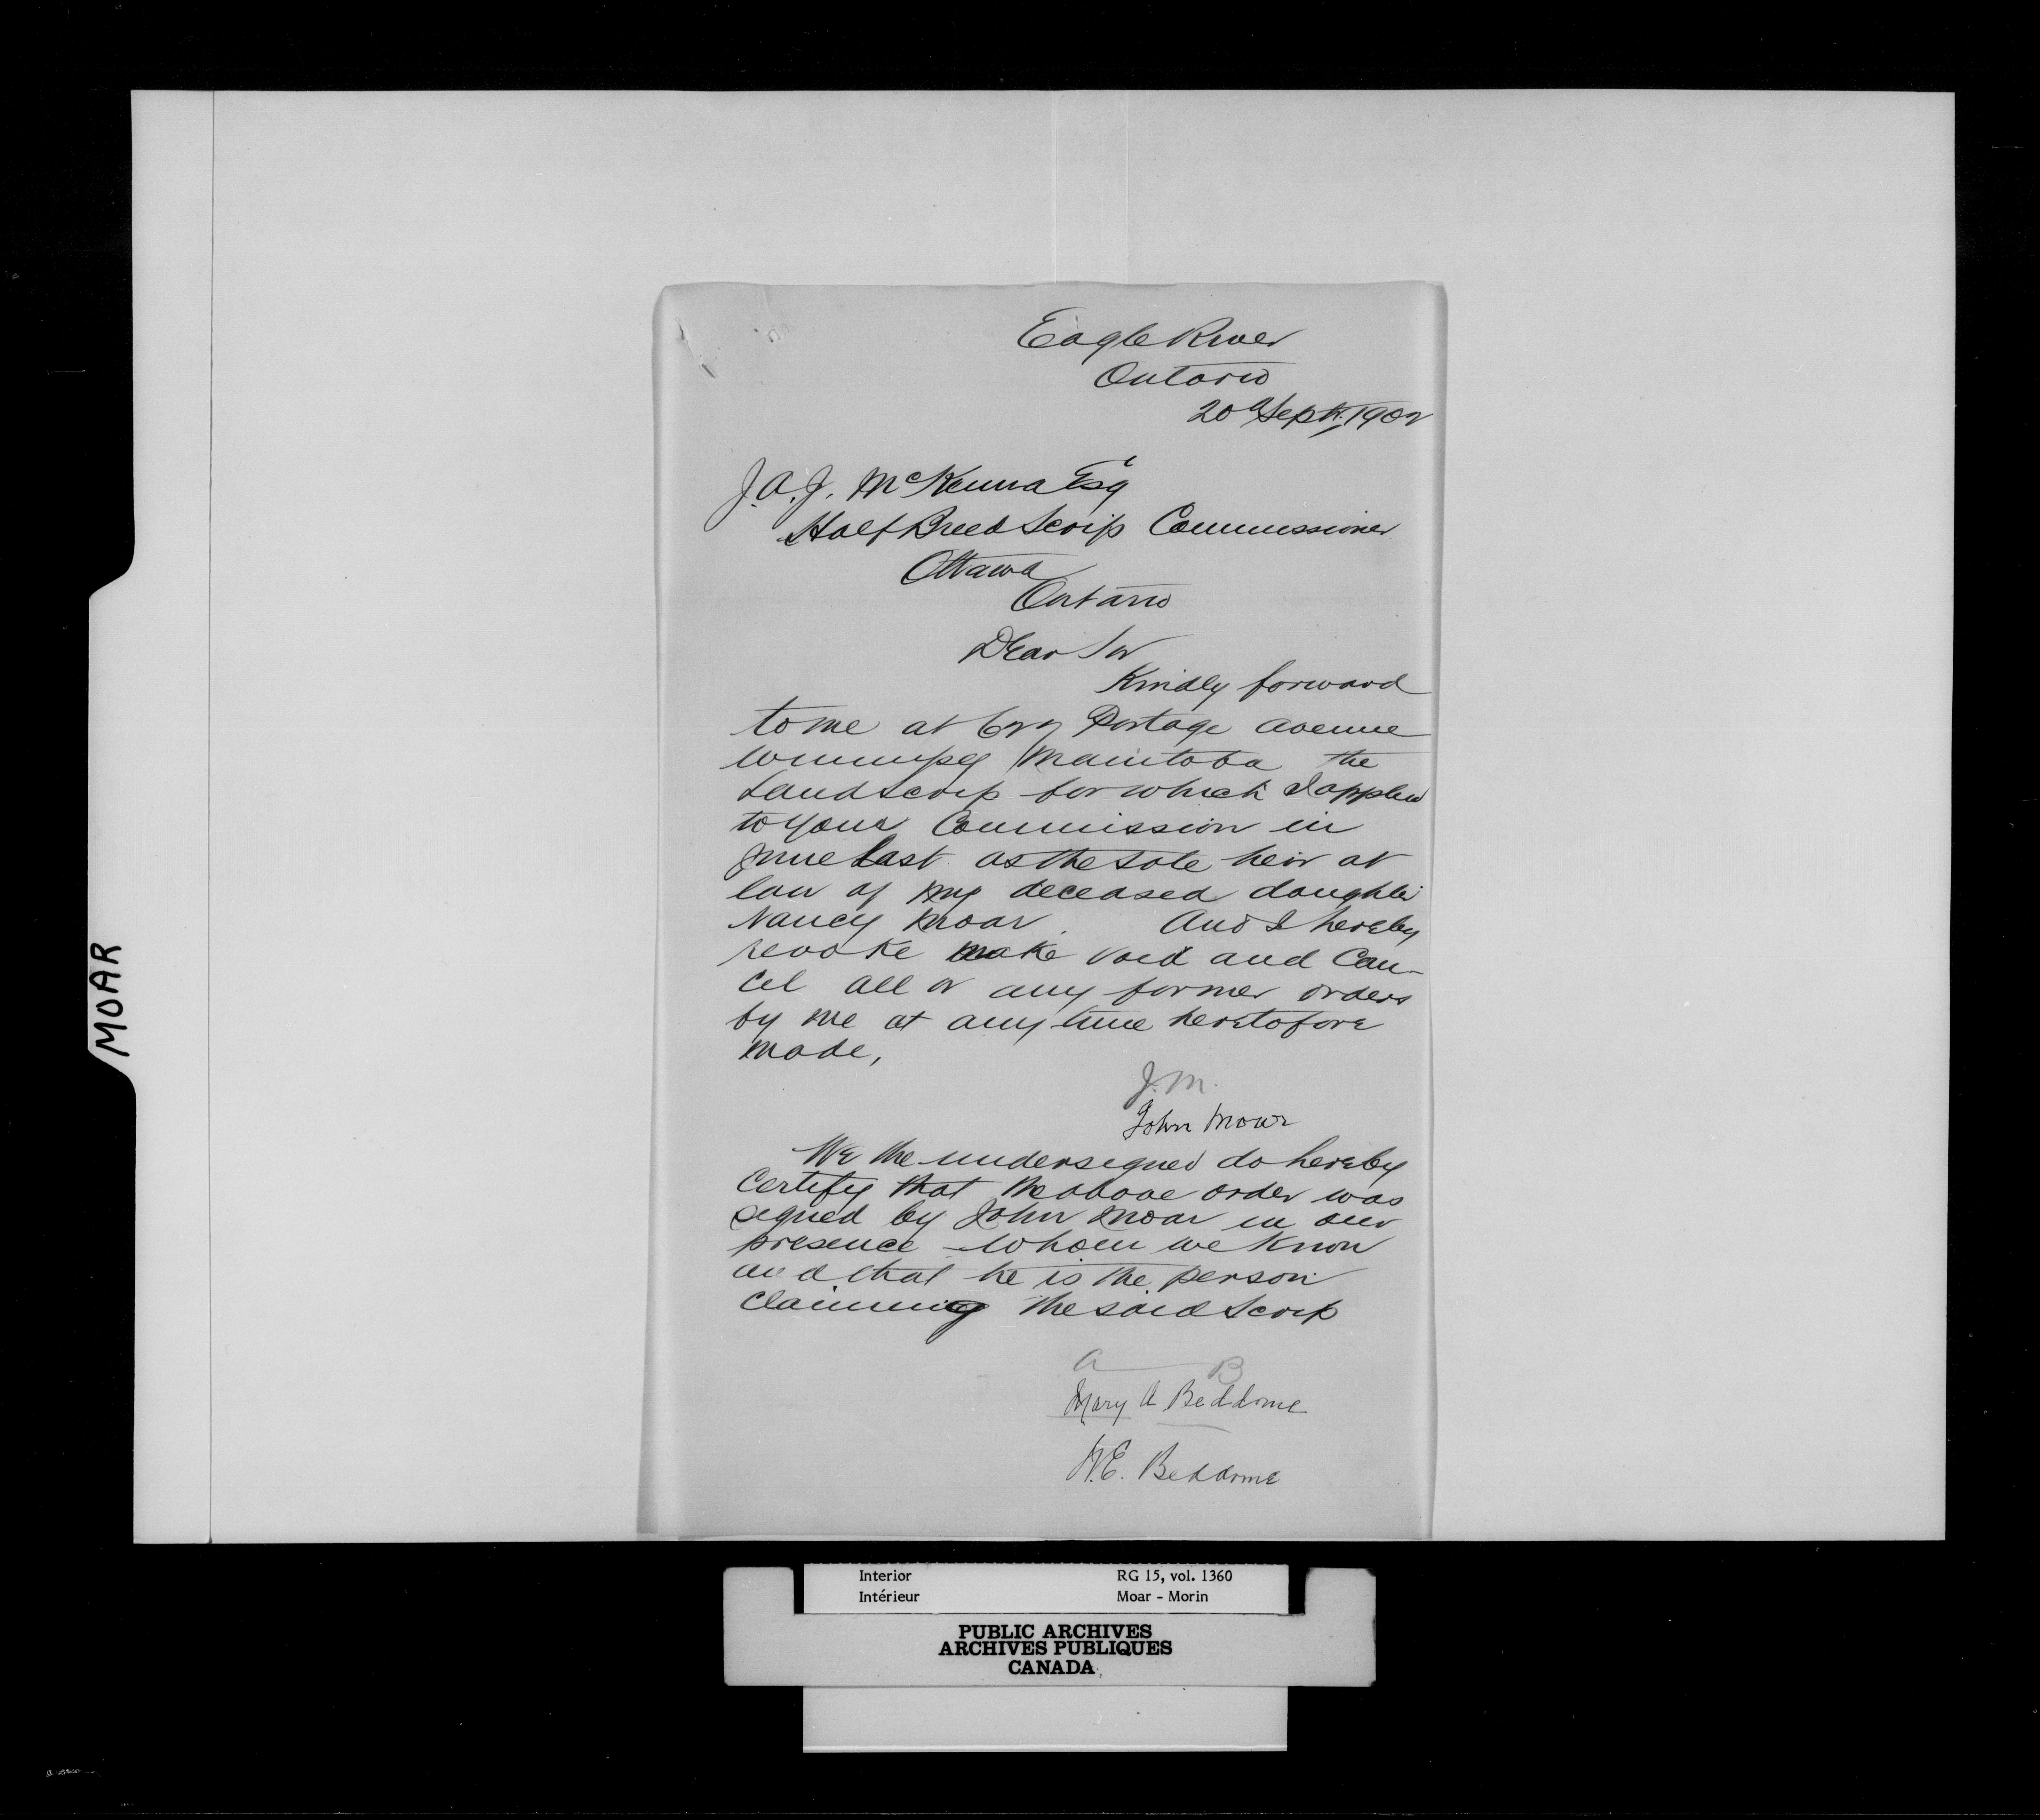 Eagle River
Ontario
20th Septr. 1902
J. A. J. McKenna Esq
Half Breed Scrip Commissioner
Ottawa
Ontario
Dear Sir
Kindly forward
to me at Portage Avenue
Winnipeg Manitoba the
Land Scrip for which I applied
to your Commission in
June last as the sole heir at
law of my deceased daughter
Nancy Moar. And I hereby
revoke make void and Can-
cel all or any former orders
by me at any time heretofore
made,
J. M.
John Moar
We the undersigned do hereby
Certify that the above order was
signed by John Moar in our
presence - whom we know
and that he is the person
claiming the said Scrip
a B
Mary A Beddome
H.E. Beddome
MOAR
Interior RG 15, vol. 1360
Intérieur Moar - Morin
PUBLIC ARCHIVES
ARCHIVES PUBLIQUES
CANADA